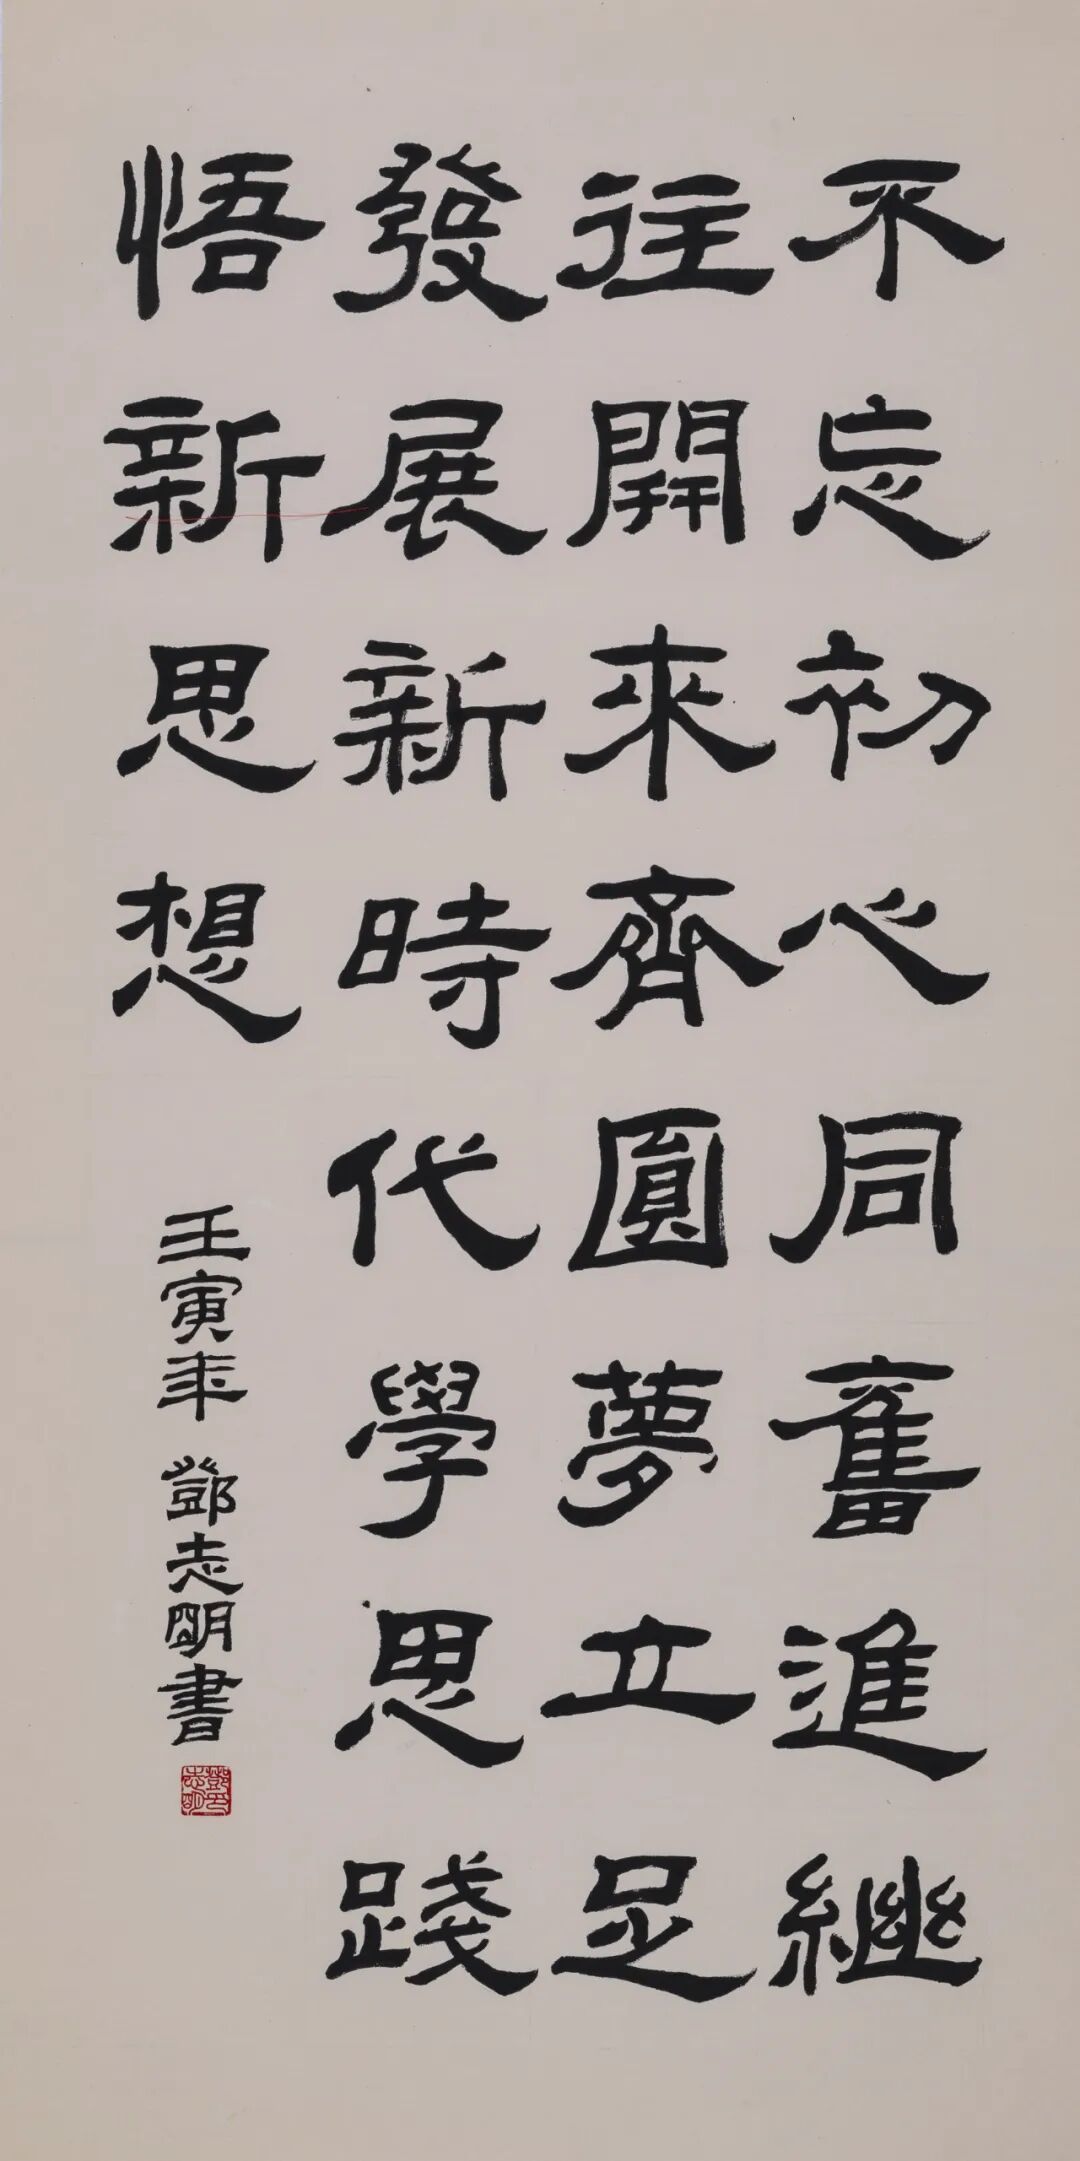 不忘初心同奮進繼
往開來齊圓夢立足
發展新時代學思踐
悟新思想
壬寅年 鄧志明書
鄧志明印